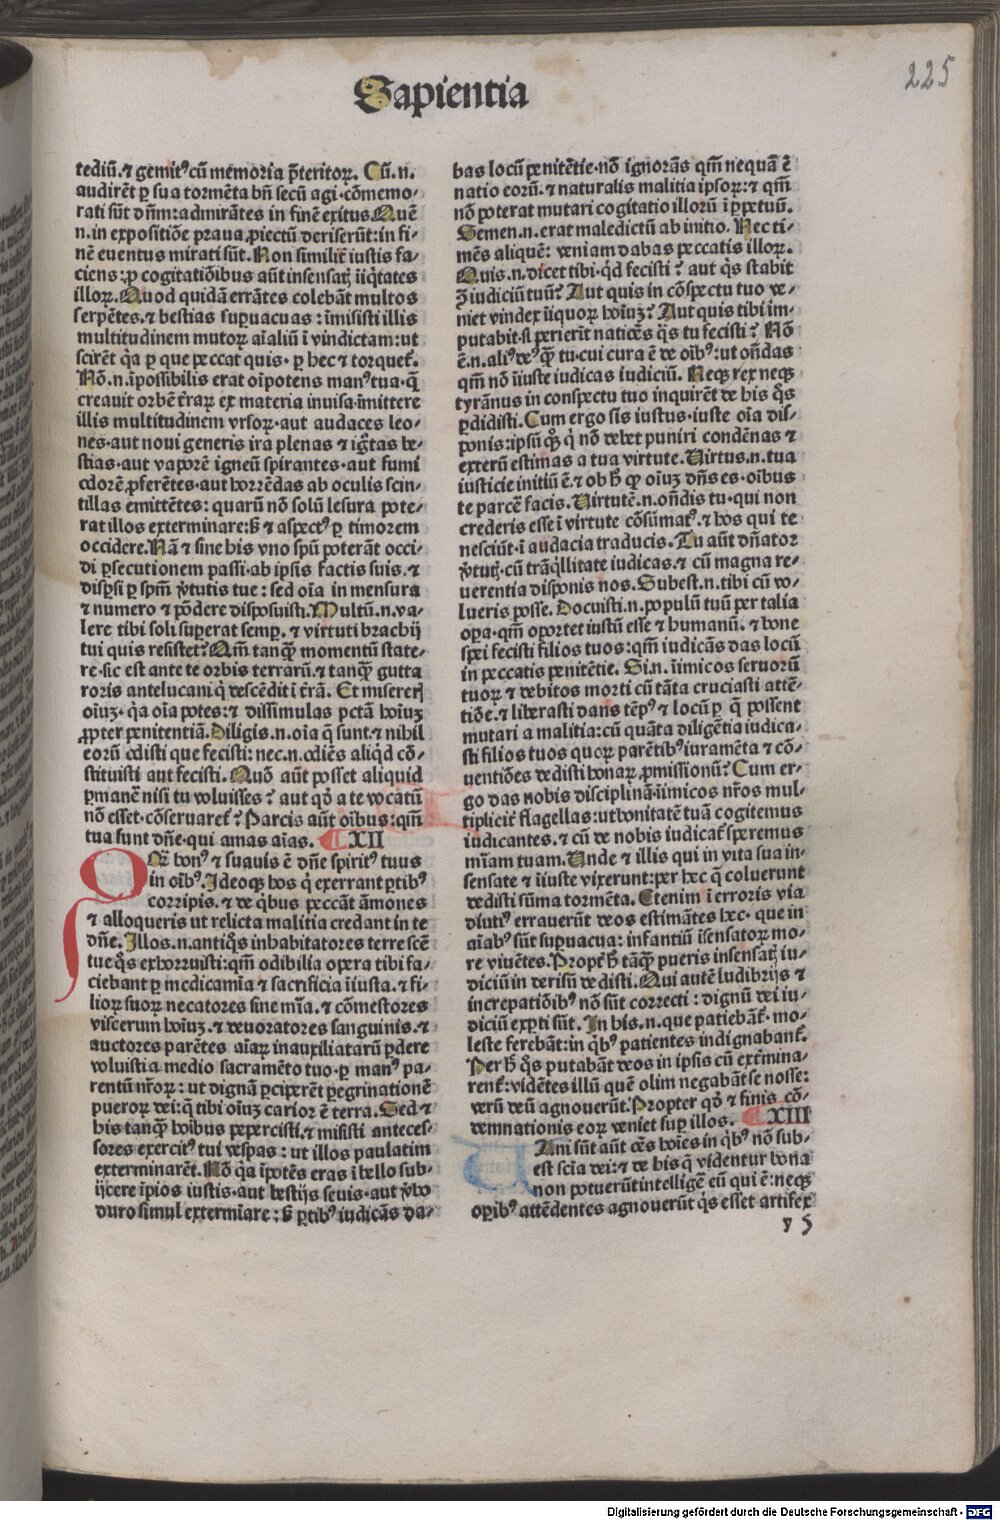 225
Sapientia
tediū. ⁊ gemitꝰ cū memoria p̄teritoꝝ. Cū .n.
audirēt ꝑ sua tormēta bn̄ secū agi· cōmemo-
rati sūt dn̄m: admirātes in finē exitus. Quē
.n. in expositiōe praua ꝓiectū deriserūt: in fi-
nē euentus mirati sūt. Non similiť iustis fa-
ciens: ꝓ cogitatiōibus aūt insensatꝝ iiq̇tates
illoꝝ. Quod quidā errātes colebāt multos
serpētes. ⁊ bestias suꝑuacuas: īmisisti illis
multitudinem mutoꝝ aīaliū ī vindictam: ut
scirēt q̇a ꝑ que peccat quis· ꝑ hec ⁊ torquet᷑.
Nō .n. īpossibilis erat oīpotens manꝰ tua· q̄
creauit orbē t̄raꝝ ex materia inuisa· īmittere
illis multitudinem vrsoꝝ· aut audaces leo-
nes· aut noui generis ira plenas ⁊ ig̊tas be-
stias· aut vaporē igneū spirantes· aut fumi
odorē ꝓferētes· aut horrēdas ab oculis scin-
tillas emittētes: quarū nō solū lesura pote-
rat illos exterminare: ꝫ ⁊ aspectꝰ ꝑ timorem
occidere. Nā ⁊ sine his vno sp̄u poterāt occi-
di ꝑsecutionem passi· ab ipsis factis suis. ⁊
disꝑsi ꝑ spm̄ v̓tutis tue: sed oīa in mensura
⁊ numero ⁊ pōdere disposuisti. Multū .n. va-
lere tibi soli suꝑerat semꝑ. ⁊ virtuti brachij
tui quis resistet? Qm̄ tanq̄ꝫ momentū state-
re· sic est ante te orbis terrarū. ⁊ tanq̄ꝫ gutta
roris antelucani q̇ descēdit ī t̄rā. Et misereris
oīuꝫ· q̇a oīa potes: ⁊ dissimulas pctā hoīuꝫ
ꝓpter penitentiā. Diligis .n. oīa q̄ sunt. ⁊ nihil
eorū odisti que fecisti: nec .n. odiēs aliqd̓ cō-
stituisti aut fecisti. Quō aūt posset aliquid
ꝑmanē nisi tu voluisses? aut qd̓ a te vocatū
nō esset· cōseruaret᷑? Parcis aūt oībus: qm̄
tua sunt dn̄e· qui amas aīas. XII
O Q̄ꝫ bonꝰ ⁊ suauis ē dn̄e spiritꝰ tuus
in oībꝰ. Ideoqꝫ hos q̇ exerrant ꝑtibꝰ
corripis. ⁊ de q̇bus peccāt āmones
⁊ alloqueris ut relicta malitia credant in te
dn̄e. Illos .n. antiq̇s inhabitatores terre scē
tue q̇s exhorruisti: qm̄ odibilia opera tibi fa-
ciebant ꝑ medicamīa ⁊ sacrificia īiusta. ⁊ fi-
lioꝝ suoꝝ necatores sine mīa. ⁊ cōmestores
viscerum hoīuꝫ. ⁊ deuoratores sanguinis. ⁊
auctores parētes aīaꝝ inauxiliatarū ꝑdere
voluisti a medio sacramēto tuo· ꝑ manꝰ pa-
rentū nr̄oꝝ: ut dignā ꝑciꝑēt ꝑegrinationē
pueroꝝ dei: q̄ tibi oīuꝫ carior ē terra. Sed ⁊
his tanq̄ꝫ hoībus peꝑcisti. ⁊ misisti anteces-
sores exercitꝰ tui vespas: ut illos paulatim
exterminarēt. Nō q̇a īpotēs eras ī bello sub-
ijcere īpios iustis· aut bestijs seuis· aut v̓bo
duro simul extermīare: ꝫ ꝑtibꝰ iudicās da-
bas locū penitētie· nō ignorās qm̄ nequā ē
natio eorū. ⁊ naturalis malitia ipsoꝝ: ⁊ qm̄
nō poterat mutari cogitatio illorū ī ꝑpetuū.
Semen .n. erat maledictū ab initio. Nec ti-
mēs aliquē: veniam dabas peccatis illoꝝ.
Quis .n. dicet tibi· qd̓ fecisti? aut q̇s stabit
ꝯ̄ iudiciū tuū? Aut quis in cōspectu tuo ve-
niet vindex iiquoꝝ hoīuꝫ? Aut quis tibi im-
putabit· si perierīt natiōes q̇s tu fecisti? Nō
ē .n. aliꝰ deꝰ q̄ꝫ tu· cui cura ē de oībꝰ: ut on̄das
qm̄ nō īiuste iudicas iudiciū. Neqꝫ rex neqꝫ
tyrānus in conspectu tuo inquirēt de his q̇s
ꝑdidisti. Cum ergo sis iustus· iuste oīa dis-
ponis: ipsū qꝫ q̇ nō debet puniri condēnas ⁊
exterū estimas a tua virtute. Virtus .n. tua
iusticie initiū ē. ⁊ ob h̓ ꝙ oīuꝫ dn̄s es· oībus
te parcē facis. Virtutē .n. on̄dis tu· qui non
crederis esse ī virtute cōsūmatꝰ. ⁊ hos qui te
nesciūt· ī audacia traducis. Tu aūt dn̄ator
v̓tutꝭ· cū trāq̇llitate iudicas. ⁊ cū magna re-
uerentia disponis nos. Subest .n. tibi cū vo-
lueris posse. Docuisti .n. populū tuū per talia
oꝑa· qm̄ oportet iustū esse ⁊ humanū. ⁊ bone
spei fecisti filios tuos: qm̄ iudicās das locū
in peccatis penitētie. Si .n. īimicos seruorū
tuoꝝ ⁊ debitos morti cū tāta cruciasti attē-
tiōe. ⁊ liberasti dans tēpꝰ ⁊ locū ꝑ q̄ possent
mutari a malitia: cū quāta diligētia iudica-
sti filios tuos quoꝝ parētibꝰ iuramēta ⁊ cō-
uentiōes dedisti bonaꝝ ꝓmissionū? Cum er-
go das nobis disciplinā· īimicos nr̄os mul-
tipliciť flagellas: ut bonitatē tuā cogitemus
iudicantes. ⁊ cū de nobis iudicat᷑ speremus
mīam tuam. Unde ⁊ illis qui in vita sua in-
sensate ⁊ īiuste vixerunt: per hec q̄ coluerunt
dedisti sūma tormēta. Etenim ī erroris via
diutiꝰ errauerūt deos estimātes hec· que in
aīabꝰ sūt suꝑuacua: infantiū īsensatoꝝ mo-
re viuētes. Propť h̓ tāq̄ꝫ pueris insensatꝭ iu-
diciū in derisū dedisti. Qui autē ludibrijs ⁊
increpatiōibꝰ nō sūt correcti: dignū dei iu-
diciū exꝑti sūt. In his .n. que patiebāt᷑· mo-
leste ferebāt: in q̇bꝰ patientes indignabant᷑.
Per h̓ q̇s putabāt deos in ipsis cū exťmina-
rent᷑: vidētes illū quē olim negabāt se nosse:
verū deū agnouerūt. Propter qd̓ ⁊ finis cō-
demnationis eoꝝ veniet suꝑ illos. XIII
Uani sūt aūt oēs hoīes in q̇bꝰ nō sub-
est scīa dei: ⁊ de his q̄ videntur bona
non potuerūt intelligē eū qui ē: neqꝫ
oꝑibꝰ attēdentes agnouerūt q̇s esset artifex
y 5
Digitalisierung gefördert durch die Deutsche Forschungsgemeinschaft - DFG